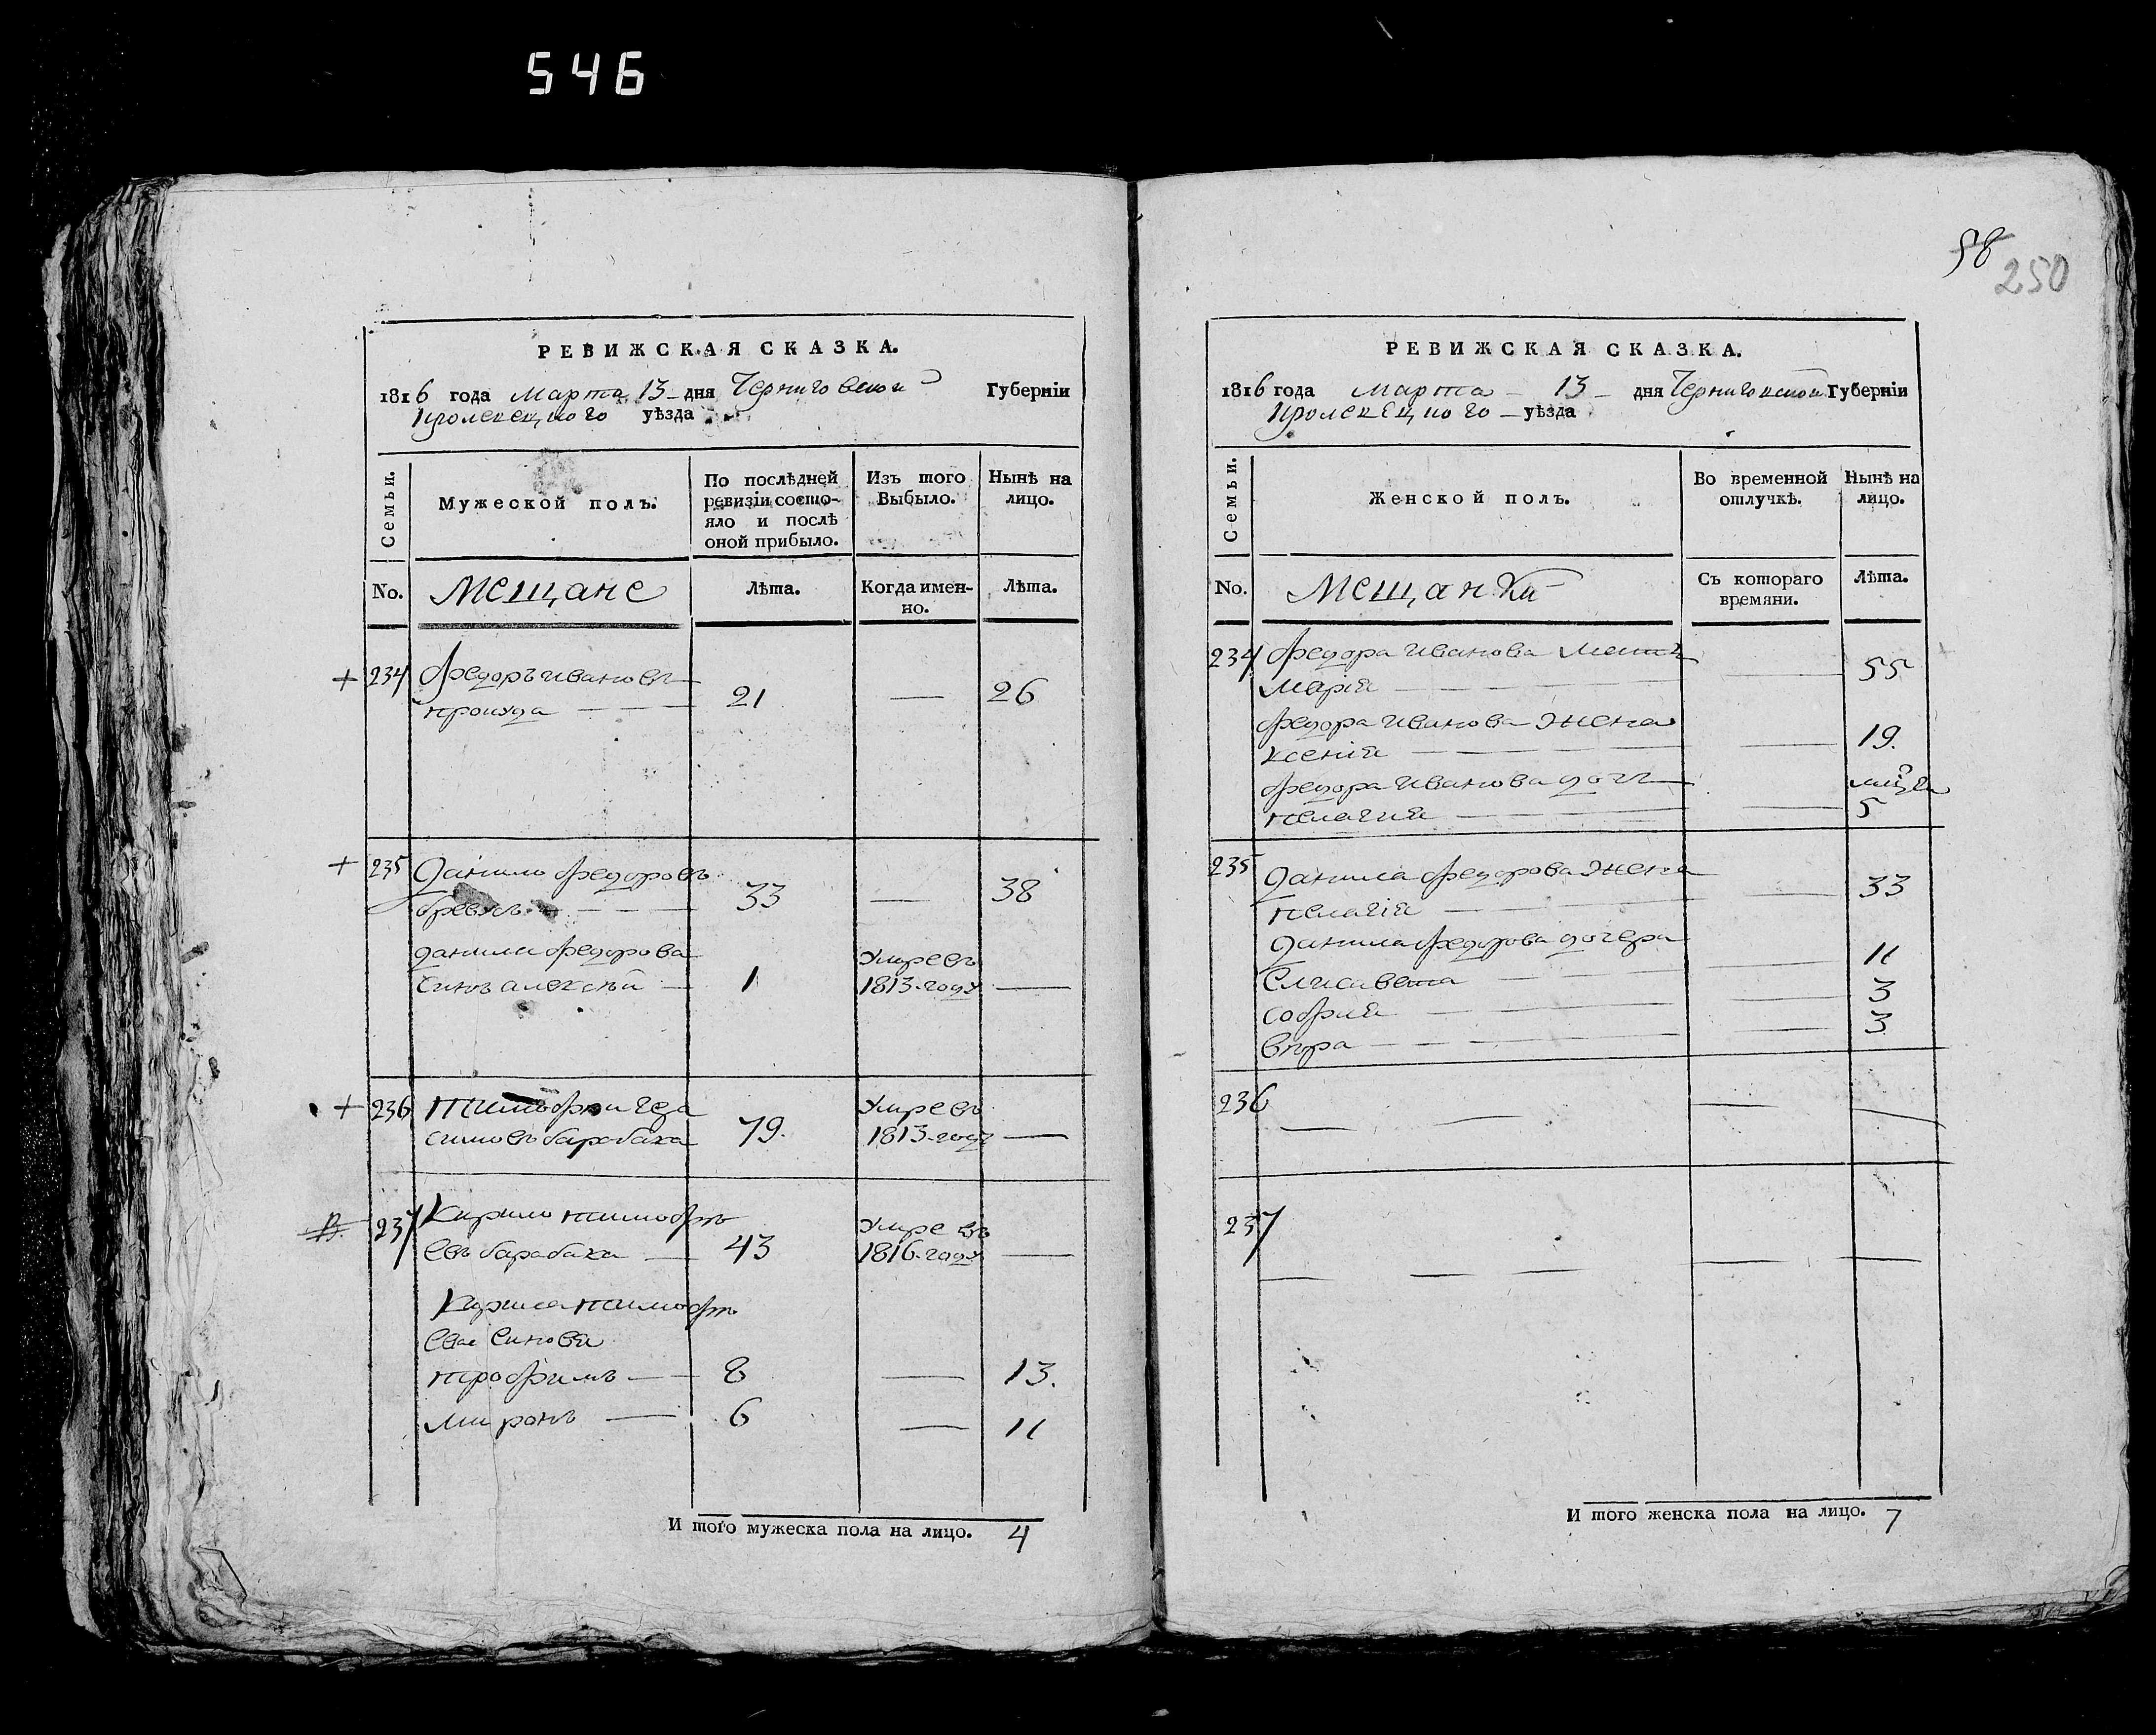 546
РЕВИЖСКАЯ СКАЗКА.
1816 года Марта 13 дня Черниговской Губерніи
Кролевецкого уѣзда
Семьи.
Мужеской полъ.
По послѣдней ревизіи состояло и послѣ оной прибыло.
Изъ того Выбыло.
Нынѣ на лицо.
No.
Мещане
Лѣта.
Когда именно.
Лѣта.
+ 234 Федоръ Ивановъ
21 — 26
+ 235 Данило Федоровъ
33 — 38
Данила Федорова Умре въ
Синъ алексѣй — 1 1813-году —
+ 236 Тимофѣй Гера Умре въ
симовъ барабаха 79. 1813-году —
237 Кирило тимофѣ Умре въ
евъ барабаха — 43 1816-году —
Кирила тимофѣ
ева Синовя
трофимъ — 8 — 13.
миронъ — 6 — 11
И того мужеска пола на лицо. 4
58
250
РЕВИЖСКАЯ СКАЗКА.
1816 года Марта 13 дня Черниговской Губерніи
Кролевецкого уѣзда
Семьи.
Женской полъ.
Во временной отлучкѣ.
Нынѣ на лицо.
No.
Мещанки
Съ котораго времяни.
Лѣта.
234 Федора Иванова Мать
Марія — — 55
Федора Иванова Жена
Ксенія — — 19.
Федора Иванова дочь
пелагия — — 5
235 Данила Федорова Жена
пелагія — — 33
Данила Федорова дочера
Елисавета — — 11
софия — — 3
вѣра — — 3
236 — — — —
237
— — — — —
И того женска пола на лицо. 7